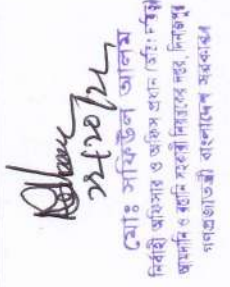 মোঃ সফিউল আলম
নির্বাহী অফিসার ও অফিস প্রধান
আমদানি ও রপ্তানি সহকারী নিয়ন্ত্রকের দপ্তর, দিনাজপুর
গণপ্রজাতন্ত্রী বাংলাদেশ সরকার